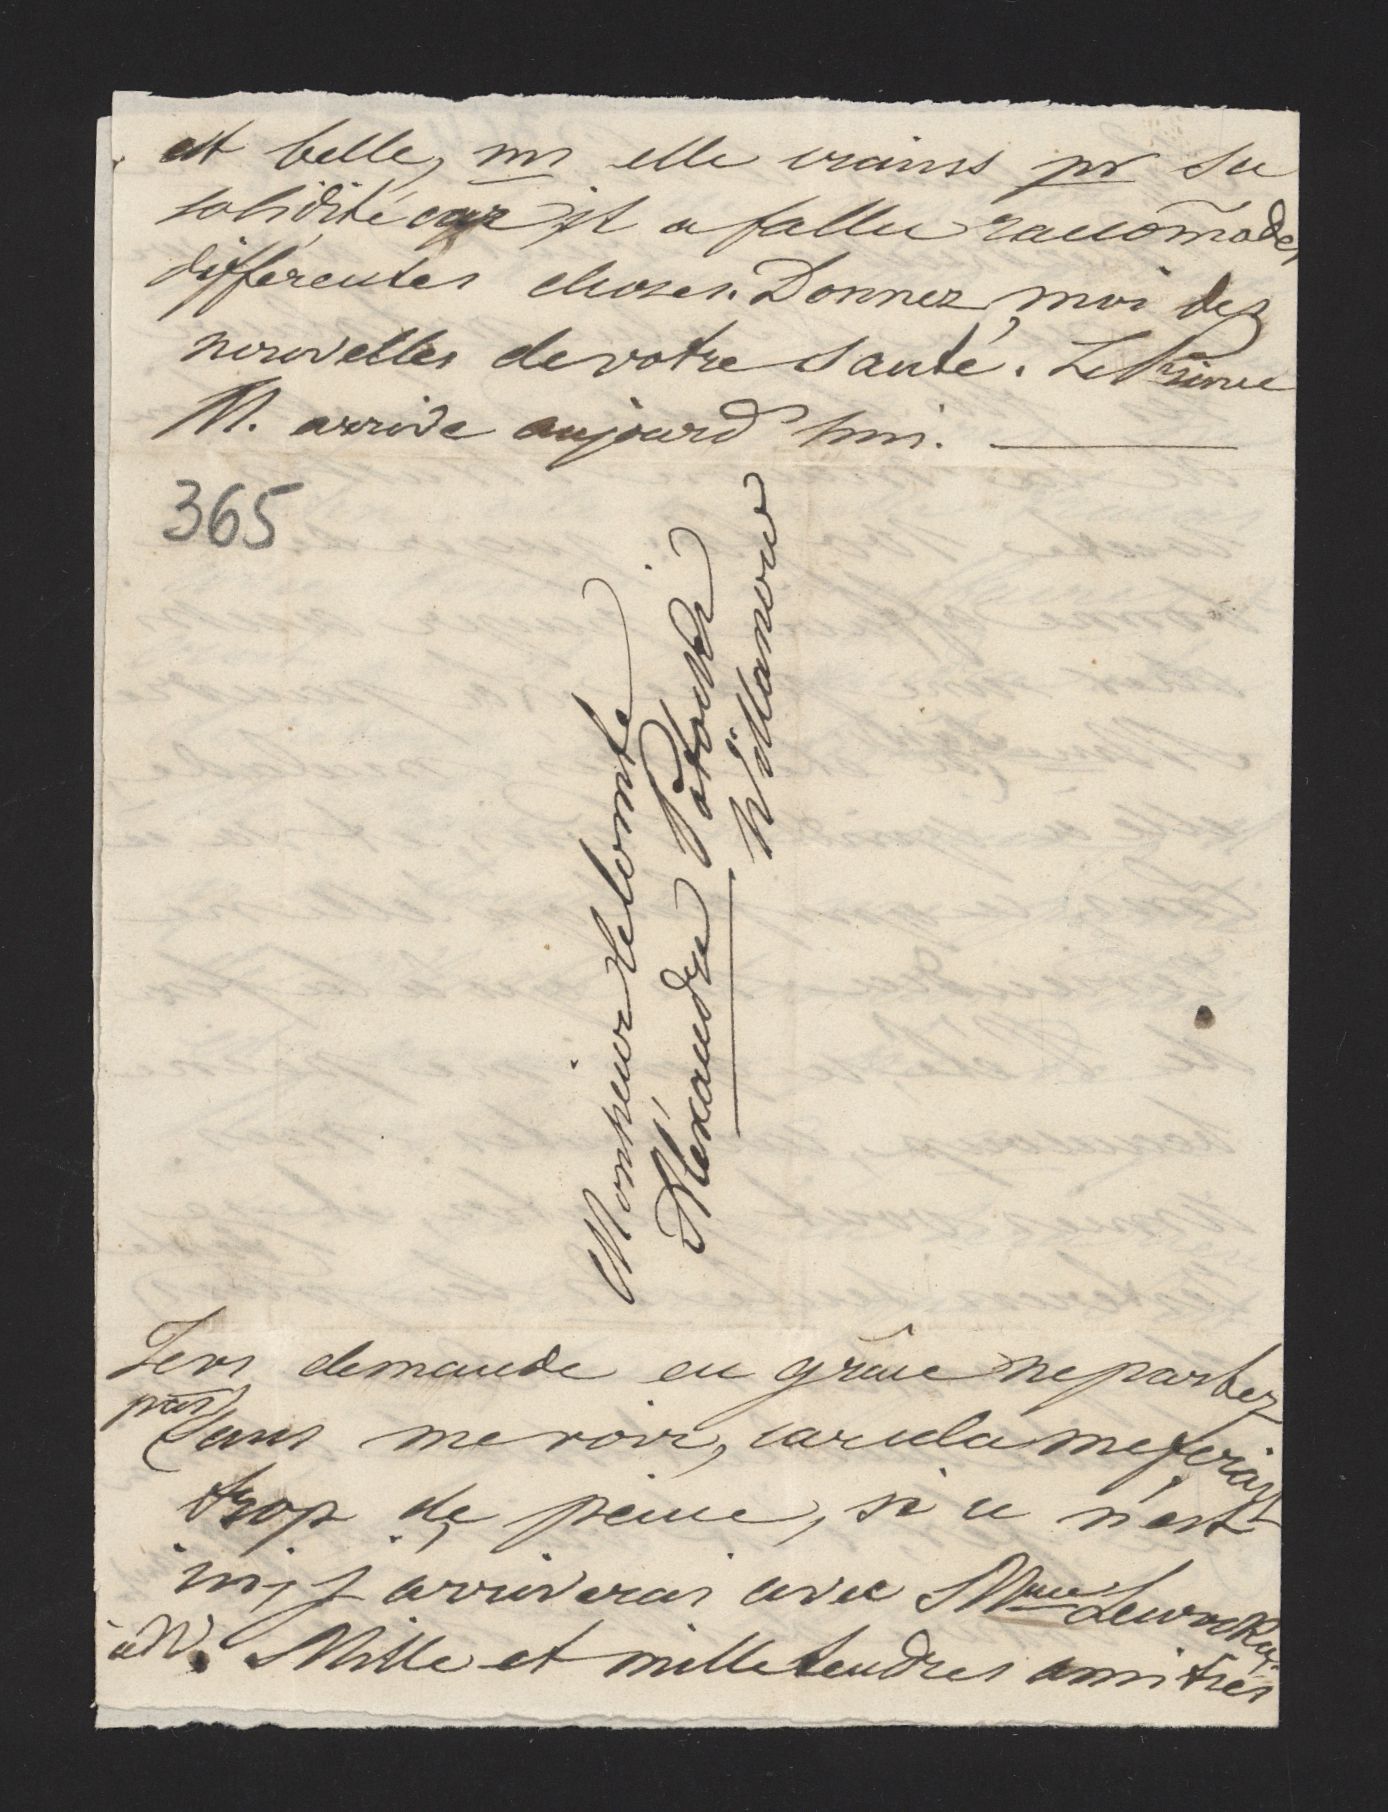 est belle, ms elle crains pr sa
solidité car il a fallu raccom̃oder
differentes choses. Donnez, moi des
nouvelles de votre Santé. Le Prince
M. arrive aujourd'hui.
365
Monsieur le Comte
Aléxandre Potocki
Willanow
Jevs demande en grâce ne partez
pas sans me voir, car cela me ferait
trop de peine, si ce n'est
ici, j'arriverai avec Mme
à W. Mille et mille tendres amitiés